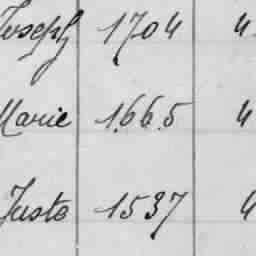 Joseph 1704 4
Marie 1665 4
Juste 1537 4